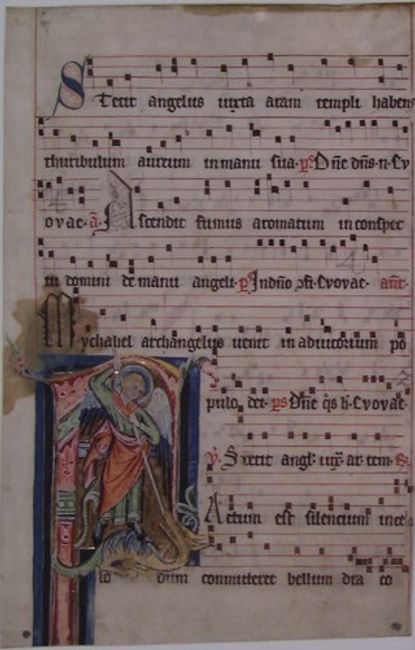 Stetit angelus iuxta aram templi habens
thuribulum aureum in manu sua. ps Dñe dñs. n. Ev
ovae. ā. Ascendit fumus aromatum in conspec
tu domini de manu angeli. ps In dño Evovae. ant.
Mychahel archangelus uenit in adiutorium po
pulo dei. ps Dñe q̄s h. Evovae.
V. Stetit angl. iux. ar. tem.
Factum est silentium in ce
lo dum committeret bellum dra co